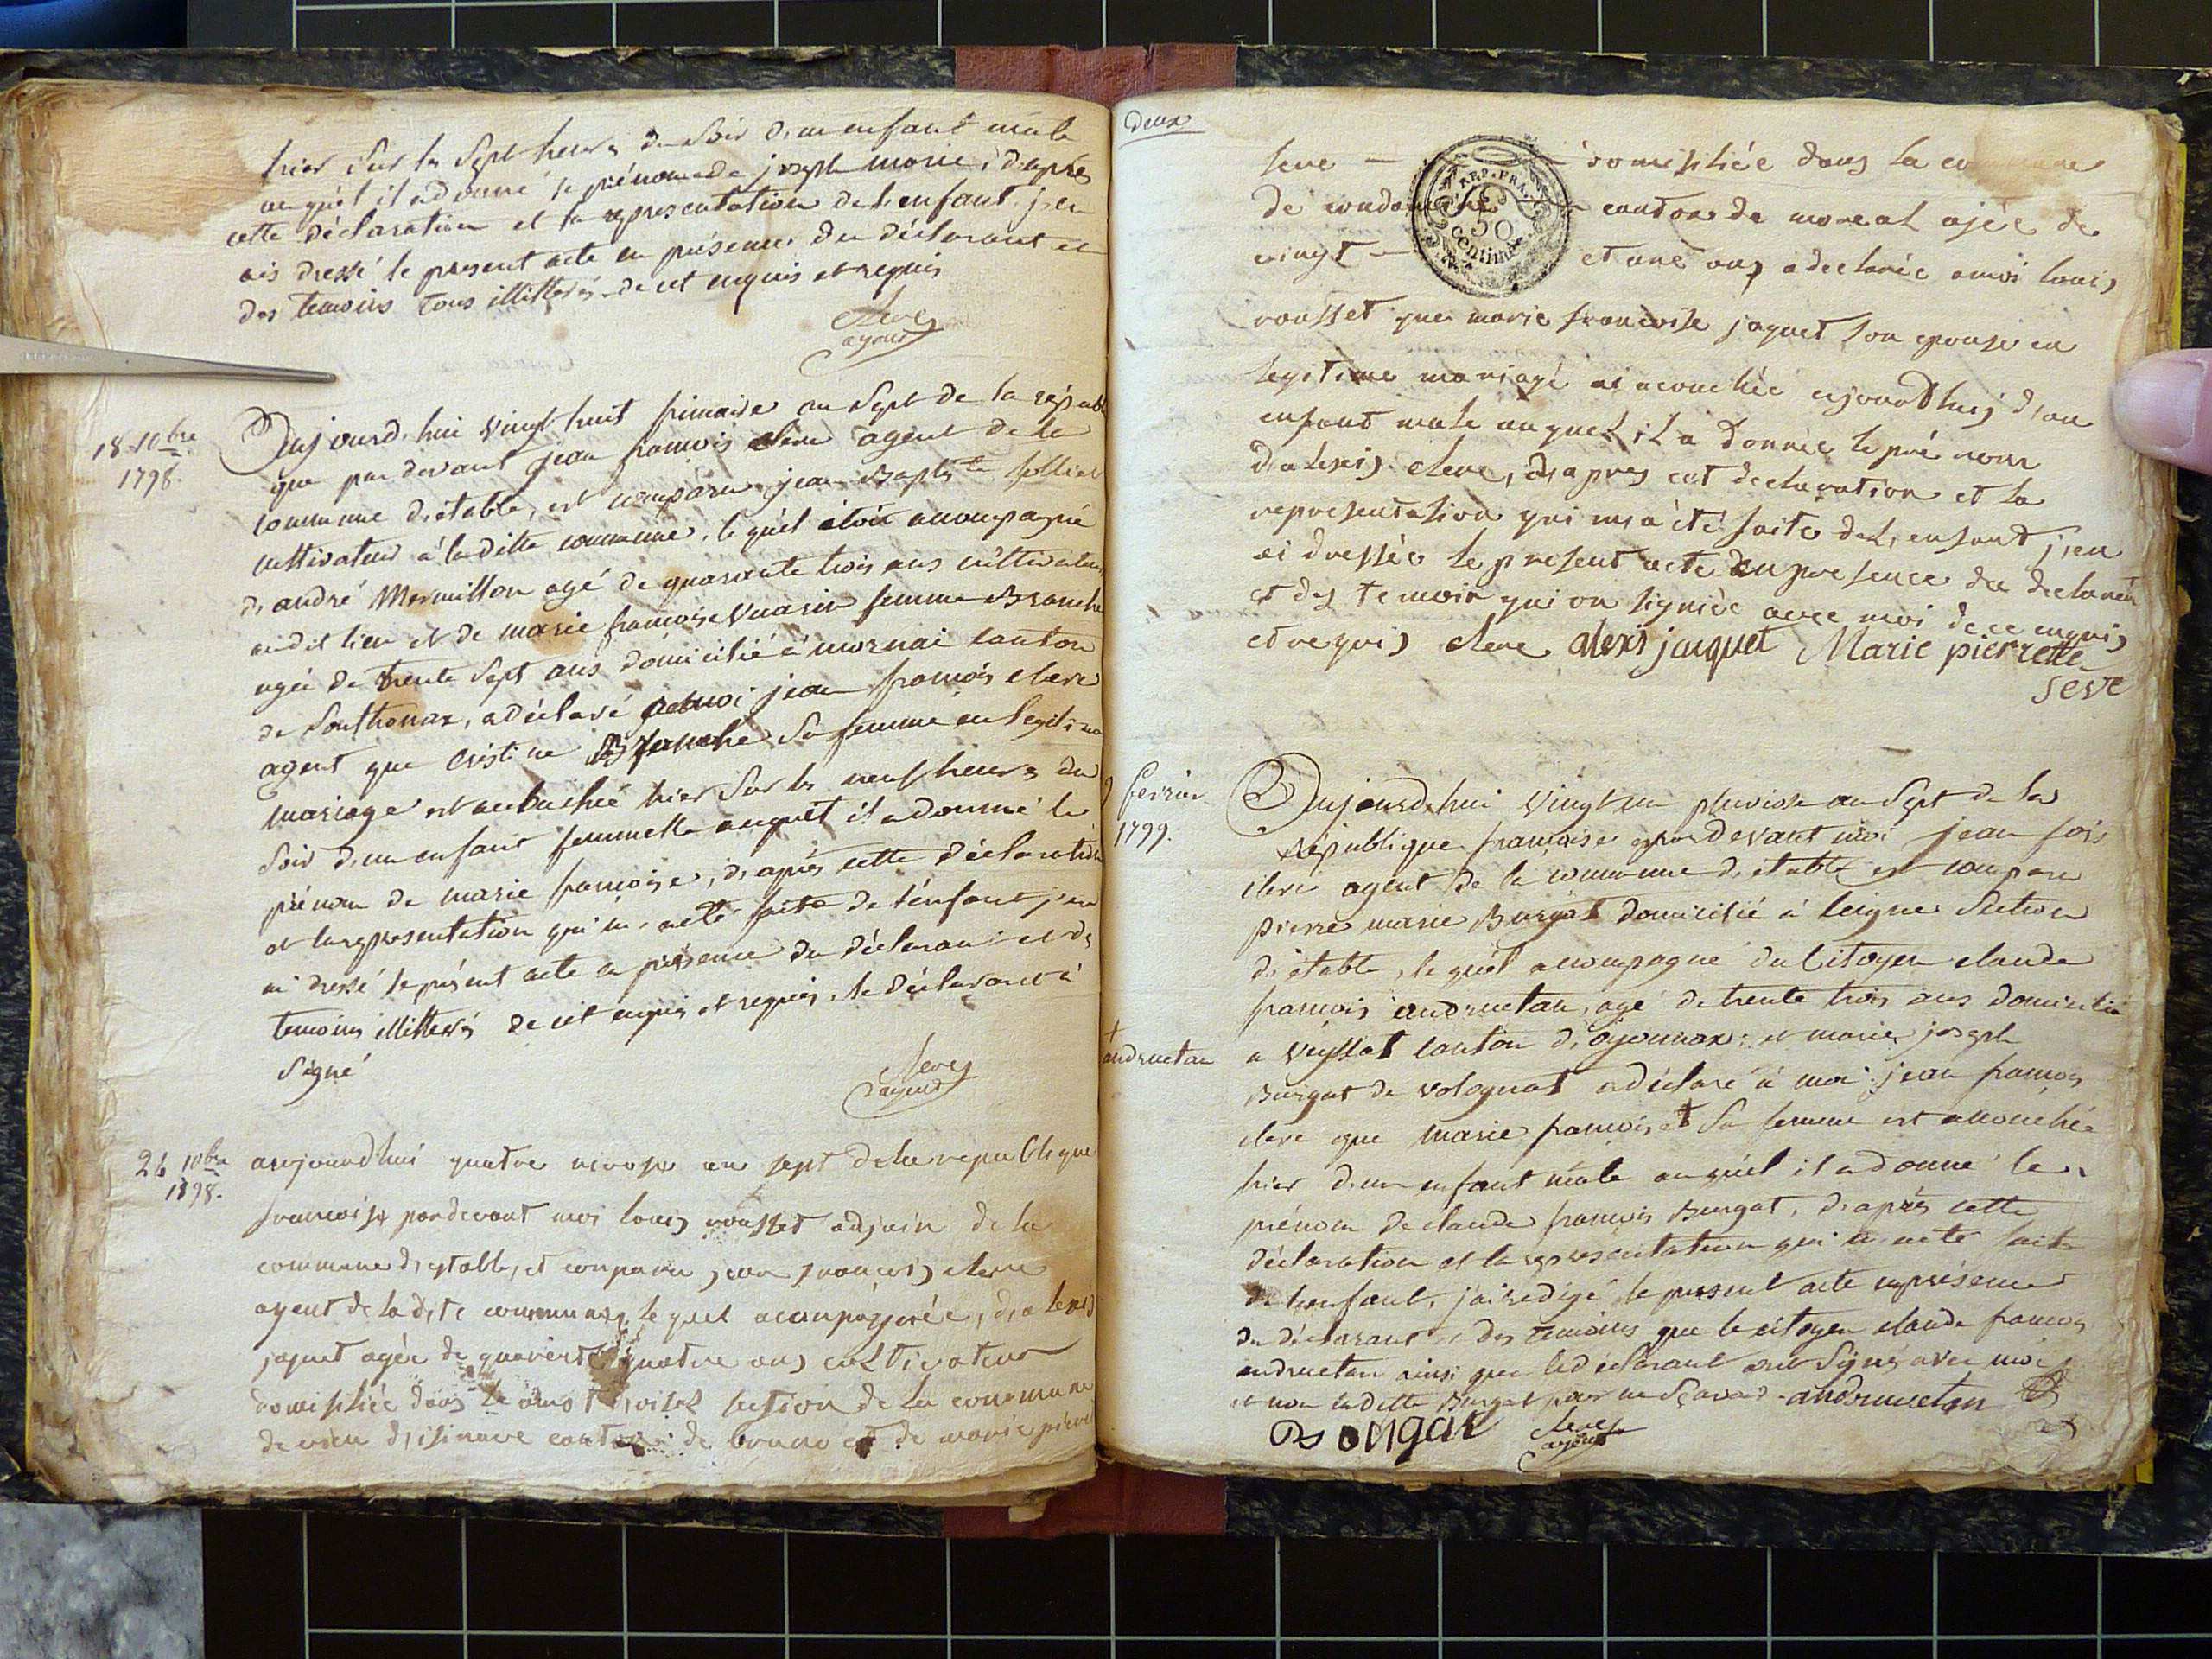 hier Sur les Sept heures du Soir d'un enfant mâle
auquel il a donné le prénom de joseph marie, d'après
cette déclaration et la representation de l'enfant j'en
ais dressé le present acte en présence du déclarant et
des temoins tous illitterés de cet enquis et requis
clerc
agent
18 10bre
1798.
Aujourd'hui vingt huit frimaire an Sept de la répub
que par devant jean francois clerc agent de la
commune d'étable, est comparu jean Baptiste
cultivateur à la ditte commune, le quel étoit acompagné
d'andré Mermillon agé de quarante trois ans cultivateur
au dit lieu et de marie francoise Vuarin femme Branche
agée de trente Sept ans domicilié à mornai canton
de Southonax, a déclaré à moi jean francois clerc
agent que cristine Branche Sa femme en legitime
mariage est accouchée hier Sur les neuf heures du
Soir d'un enfant femmelle auquel il a donné le
prénom de marie francoise, d'après cette déclaration
et la representation qui m'a été faite de l'enfant j'en
ai dressé le présent acte en présence du déclarant et des
temoins illitterés de cet enquis et requis, le déclarant à
Signé
clerc
agent
24 10bre
1798.
aujourdhui quatre nivose an sept de la republique
francoise pardevant moi louis rousset adjoin de la
commune d'etable, et comparu jean francois clerc
agent de la dite commune, le quel acompagnée, d'alexis
jaquet agée de quarente quatre ans cultivateur
domisiliée dans section de la commune
de canton de et de marie pierre
deux
seve — domisiliée dans la commune
de condamine — canton de moreal ajée de
vingt — et une ans a declarée a moi louis
rousset que marie francoise jaquet son epouse en
legitime mariage ai acouchée aujourdhuj d'un
enfant male auquel il a donnée le pré nom
d'alexis clerc, d'apres cet declaration et la
representasion qui m'a été faite de l'enfant j'en
ai dressée le present acte en presence du declarent
et des temoin qui on signiée avec moi de ce enquis
et requis clerc alexis jaquet Marie pierrette
seve
9 fevrier
1799.
Aujourd'hui vingt un pluviose an Sept de la
république francoise pardevant moi jean fois
clerc agent de la commune d'étable est comparu
pierre marie Burgat domicilié à leigne Section
d'étable, le quel acompagné du Citoyen claude
francois andruetan, agé de trente trois ans domicilié
+
andruetan
a veyssat canton d'oyonnax: et marie joseph
Burgat de volognat a déclaré à moi jean francois
clerc que marie francoise + Sa femme est acouchée
hier d'un enfant mâle auquel il a donné le
prénom de claude francois Burgat, d'après cette
déclaration et la representation qui m'a été faite
de l'enfant, j'ai redigé le present acte en présence
du déclarant et des temoins que le citoyen claude francois
andruetan ainsi que le déclarant ont Signé avec moi
et non la ditte Burgat pour ne Sçavoir. andruetan
clerc
agent
REP. FRA.
50
centimes